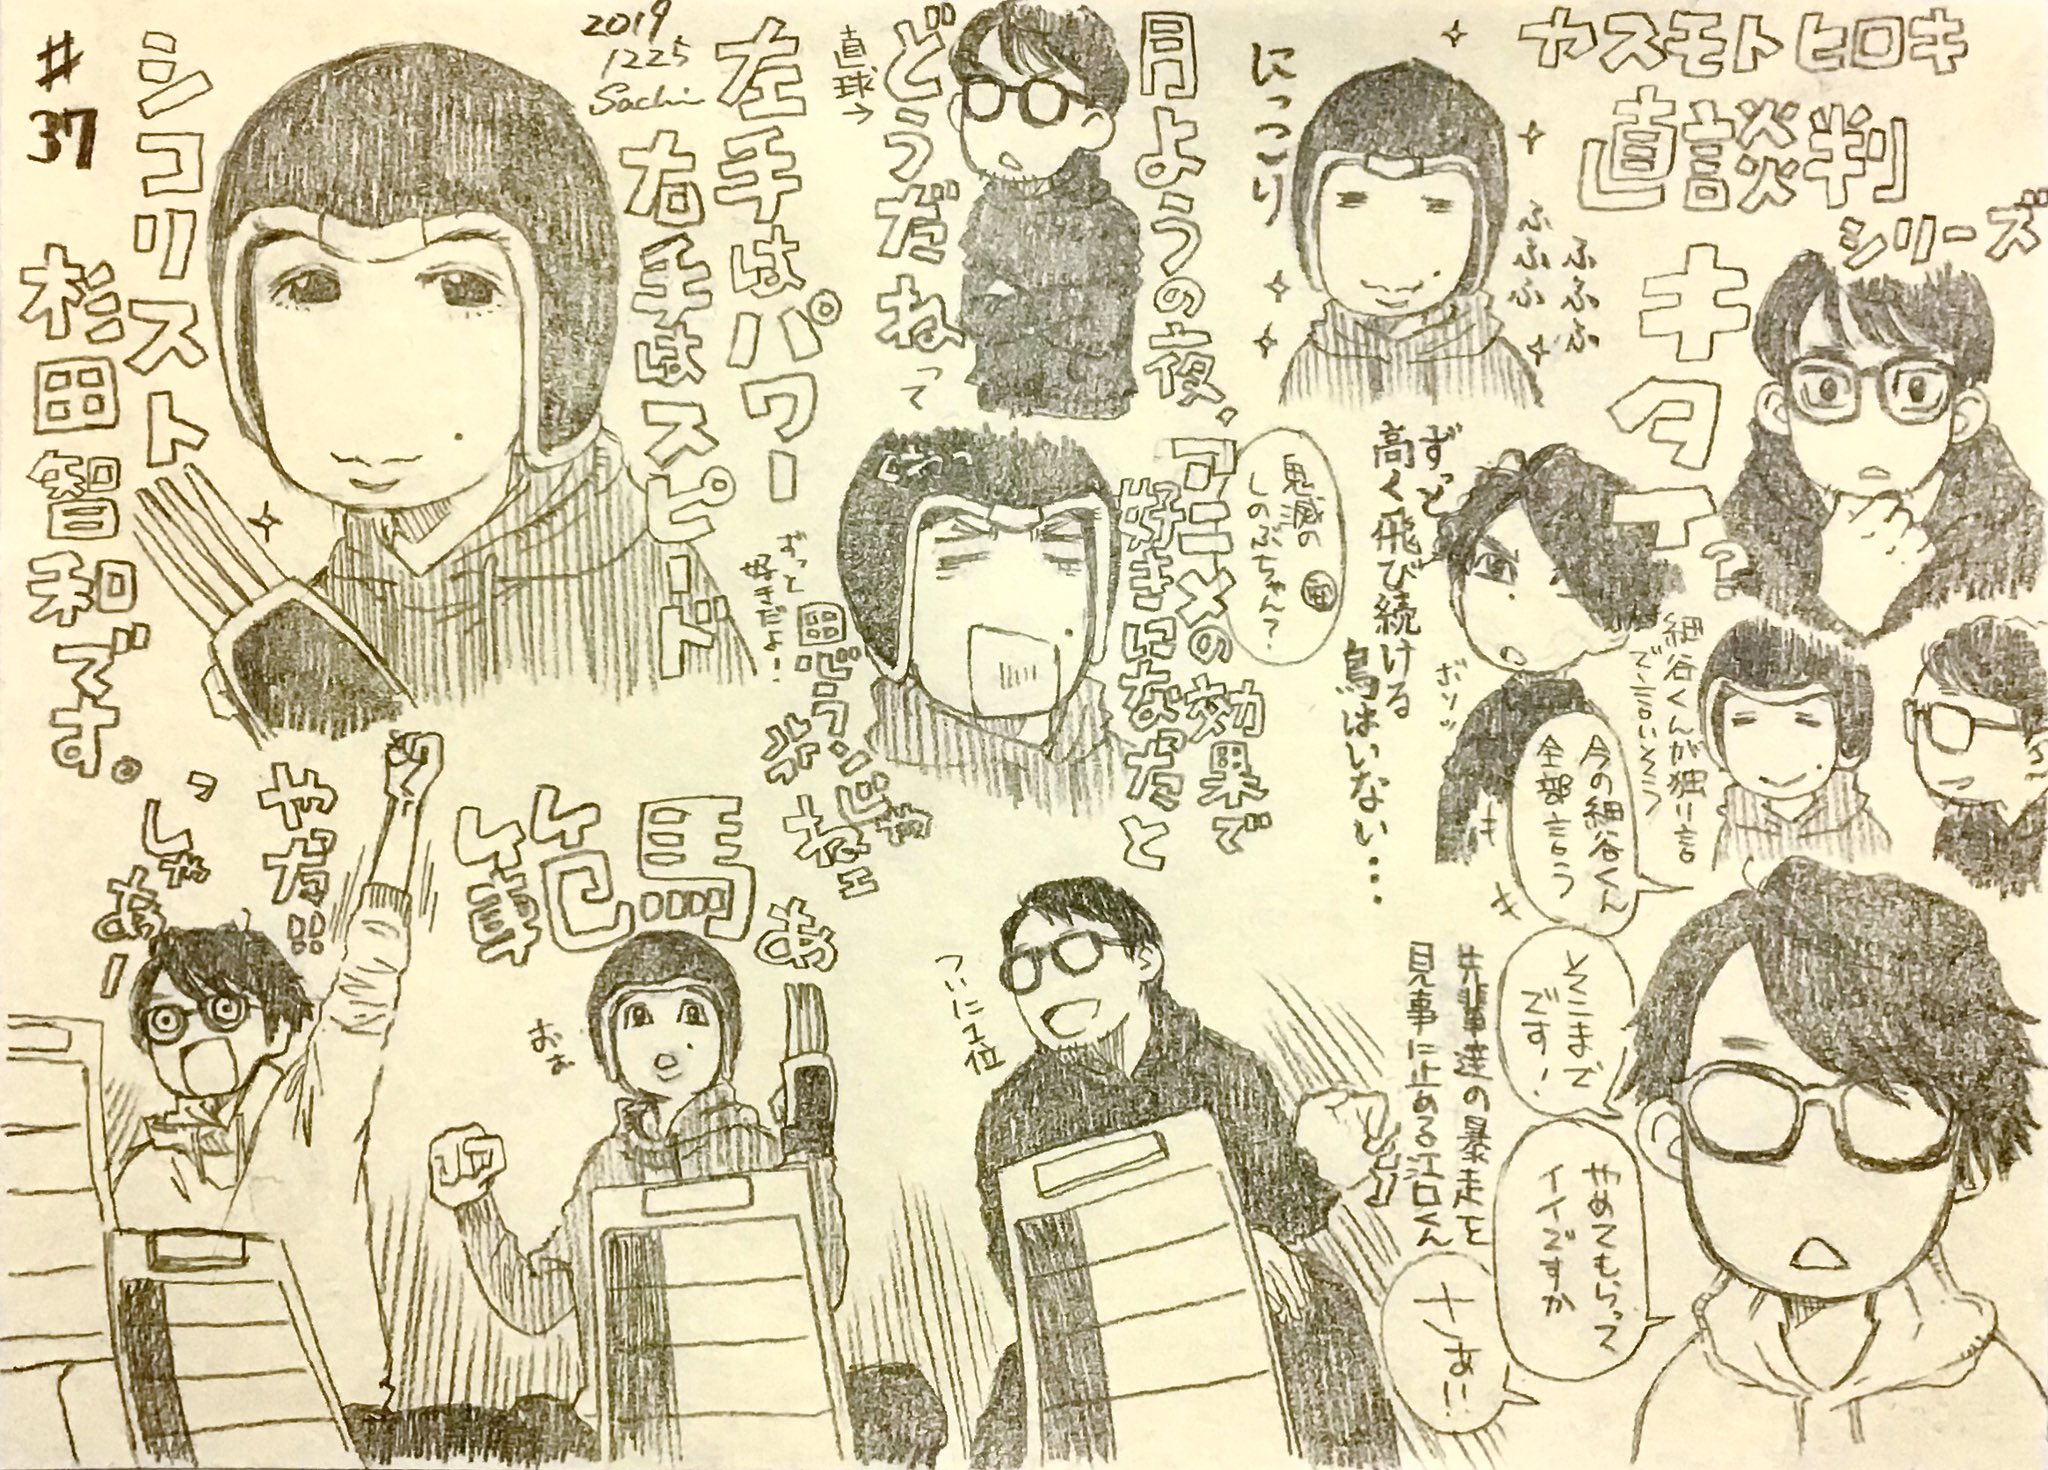 ヤスモトヒロキ
直談判
シリーズ
キター？
にっこり
ふふふ
ふふふ
細谷くんが独り言
で言いそう
今の細谷くん
全部言う
ずっと
高く飛び続ける
鳥はいない…
ボソッ
そこまで
です！
やめてもらって
イイですか
さあ!!
先輩達の暴走を
見事に止める江口くん
月ようの夜、
アニメの効果で
好きになったと
鬼滅の
しのぶちゃん？
直球→
どうだねって
ずっと
好きだよ！
2019
1225
Sachi
左手はパワー
右手はスピード
#37
シコリスト
杉田智和です。
やった!!
っしゃあー
範馬
あ
おぉ
ついに1位